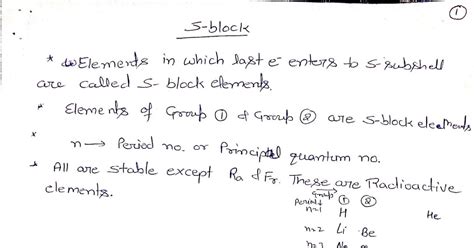 ①
S-block
* Elements in which last e⁻ enters to S-subshell
are called S-block elements.
* Elements of Group ① & Group ② are S-block elements
*
n → Period no. or Principal quantum no.
* All are stable except Ra & Fr. These are Radioactive
elements.
Group
Period ① ②
n=1 H He
n=2 Li Be
n=3 Na